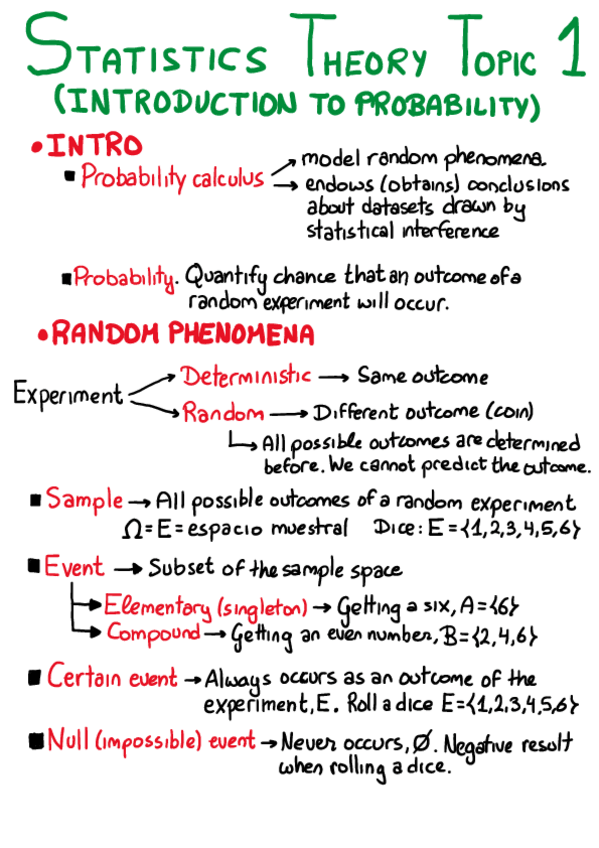 STATISTICS THEORY TOPIC 1
(INTRODUCTION TO PROBABILITY)
• INTRO
▪ Probability calculus → model random phenomena.
→ endows (obtains) conclusions
about datasets drawn by
statistical interference
▪ Probability. Quantify chance that an outcome of a
random experiment will occur.
• RANDOM PHENOMENA
Deterministic → Same outcome
Experiment
Random → Different outcome (coin)
↳ All possible outcomes are determined
before. We cannot predict the outcome.
▪ Sample → All possible outcomes of a random experiment
Ω = E = espacio muestral Dice: E = {1,2,3,4,5,6}
▪ Event → Subset of the sample space
→ Elementary (singleton) → Getting a six, A = {6}
→ Compound → Getting an even number, B = {2,4,6}
▪ Certain event → Always occurs as an outcome of the
experiment, E. Roll a dice E = {1,2,3,4,5,6}
▪ Null (impossible) event → Never occurs, Ø. Negative result
when rolling a dice.